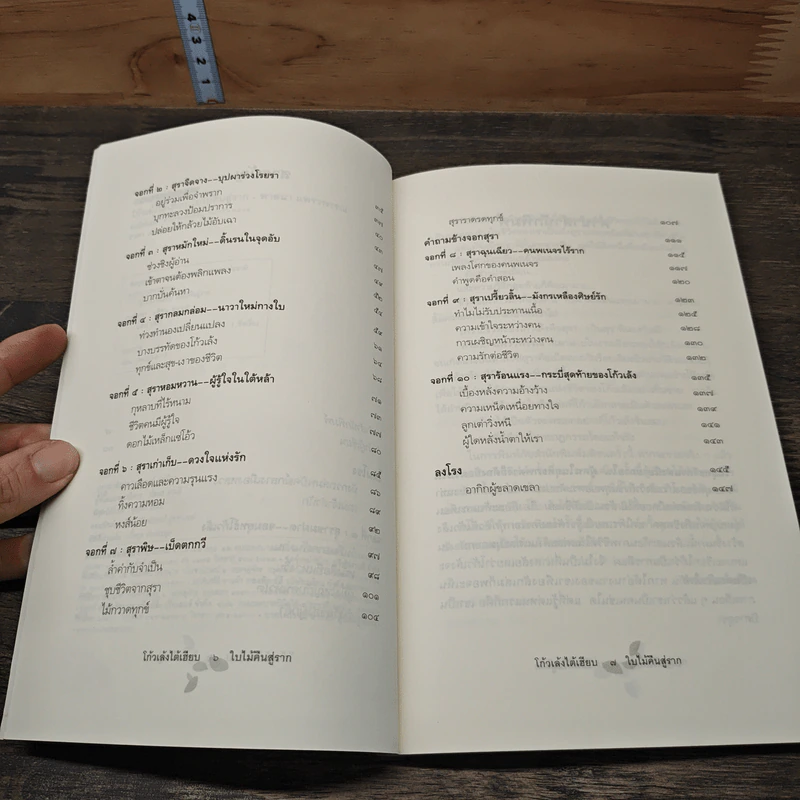 4 3 2 1
จอกที่ ๒ : สุราจืดจาง--บุปผาช่วงโรยรา ๓๕
อยู่ร่วมเพื่อจำพราก ๓๗
บุกทะลวงป้อมปราการ ๔๐
ปล่อยให้กล้วยไม้อับเฉา ๔๓
จอกที่ ๓ : สุราหมักใหม่--ดิ้นรนในจุดอับ ๔๗
ช่วงชิงผู้อ่าน ๔๙
เช้าตาจนต้องพลิกแพลง ๕๒
บากบั่นค้นหา ๕๔
จอกที่ ๔ : สุรากลมกล่อม--นาวาใหม่กางใบ ๕๙
ท่วงทำนองเปลี่ยนแปลง ๖๑
บางบรรทัดของโก้วเล้ง ๖๔
ทุกข์และสุข-เงาของชีวิต ๖๘
จอกที่ ๕ : สุราหอมหวาน--ผู้รู้ใจในใต้หล้า ๗๑
กุหลาบที่ไร้หนาม ๗๓
ชีวิตคนมีผู้รู้ใจ ๗๗
ดอกไม้เหล็กแซ่โอ้ว ๘๐
จอกที่ ๖ : สุราเก่าเก็บ--ดวงใจแห่งรัก ๘๕
คาวเลือดและความรุนแรง ๘๖
ทิ้งความหอม ๘๙
หงส์น้อย ๙๒
จอกที่ ๗ : สุราพิษ--เบ็ดตกกวี ๙๗
ล้ำค่ากับจำเป็น ๙๘
ชุบชีวิตจากสุรา ๑๐๑
ไม้กวาดทุกข์ ๑๐๔
โก้วเล้งไต้เฮียบ ๖ ใบไม้คืนสู่ราก
สุราราดรดทุกข์ ๑๐๗
คำถามข้างจอกสุรา ๑๑๑
จอกที่ ๘ : สุราฉุนเฉียว--คนพเนจรไร้ราก ๑๑๕
เพลงโศกของคนพเนจร ๑๑๗
คำพูดคือคำสอน ๑๒๐
จอกที่ ๙ : สุราเปรี้ยวลิ้น--มังกรเหลืองศิษย์รัก ๑๒๓
ทำไมไม่รับประทานเนื้อ ๑๒๕
ความเข้าใจระหว่างคน ๑๒๘
การเผชิญหน้าระหว่างคน ๑๓๐
ความรักต่อชีวิต ๑๓๒
จอกที่ ๑๐ : สุราร้อนแรง--กระบี่สุดท้ายของโก้วเล้ง ๑๓๕
เบื้องหลังความอ้างว้าง ๑๓๗
ความเหน็ดเหนื่อยทางใจ ๑๓๙
ลูกเต๋าวิ่งหนี ๑๔๑
ผู้ใดหลั่งน้ำตาให้เรา ๑๔๓
ลงโรง ๑๔๕
อากิกผู้ขลาดเขลา ๑๔๗
โก้วเล้งไต้เฮียบ ๗ ใบไม้คืนสู่ราก